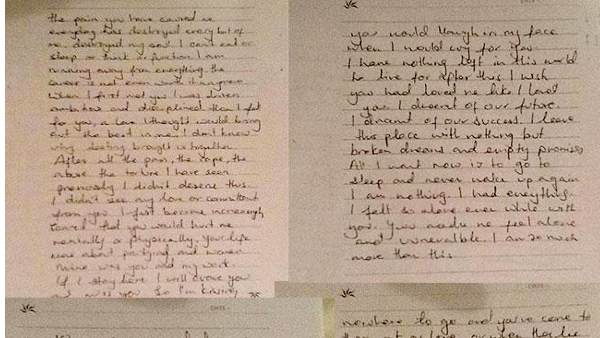 the pain you have caused me
everyday has destroyed every bit of
me, destroyed my soul. I can't eat or
sleep or think or function. I am
running away from everything. The
career is not even worth it anymore
When I first met you I was driven
ambitious and disciplined. Then I fell
for you, a love I thought would bring
out the best in me. I don't know
why destiny brought us together
After all the pain, the rape, the
abuse, the torture I have seen
previously I didn't deserve this.
I didn't see any love or commitment
from you. I just became increasingly
scared that you would hurt me
mentally or physically. Your life
was about partying and women
Mine was you and my work.
If I stay here I will crave you
and miss you. So I'm kissing
DATE
you would laugh in my face
when I would cry for you
I have nothing left in this world
to live for after this. I wish
you had loved me like I loved
you. I dreamt of our future.
I dreamt of our success. I leave
this place with nothing but
broken dreams and empty promises
All I want now is to go to
sleep and never wake up again
I am nothing. I had everything.
I felt so alone even while with
you. You made me feel alone
and vulnerable. I am so much
more than this.
DATE
nowhere to go and you've come to